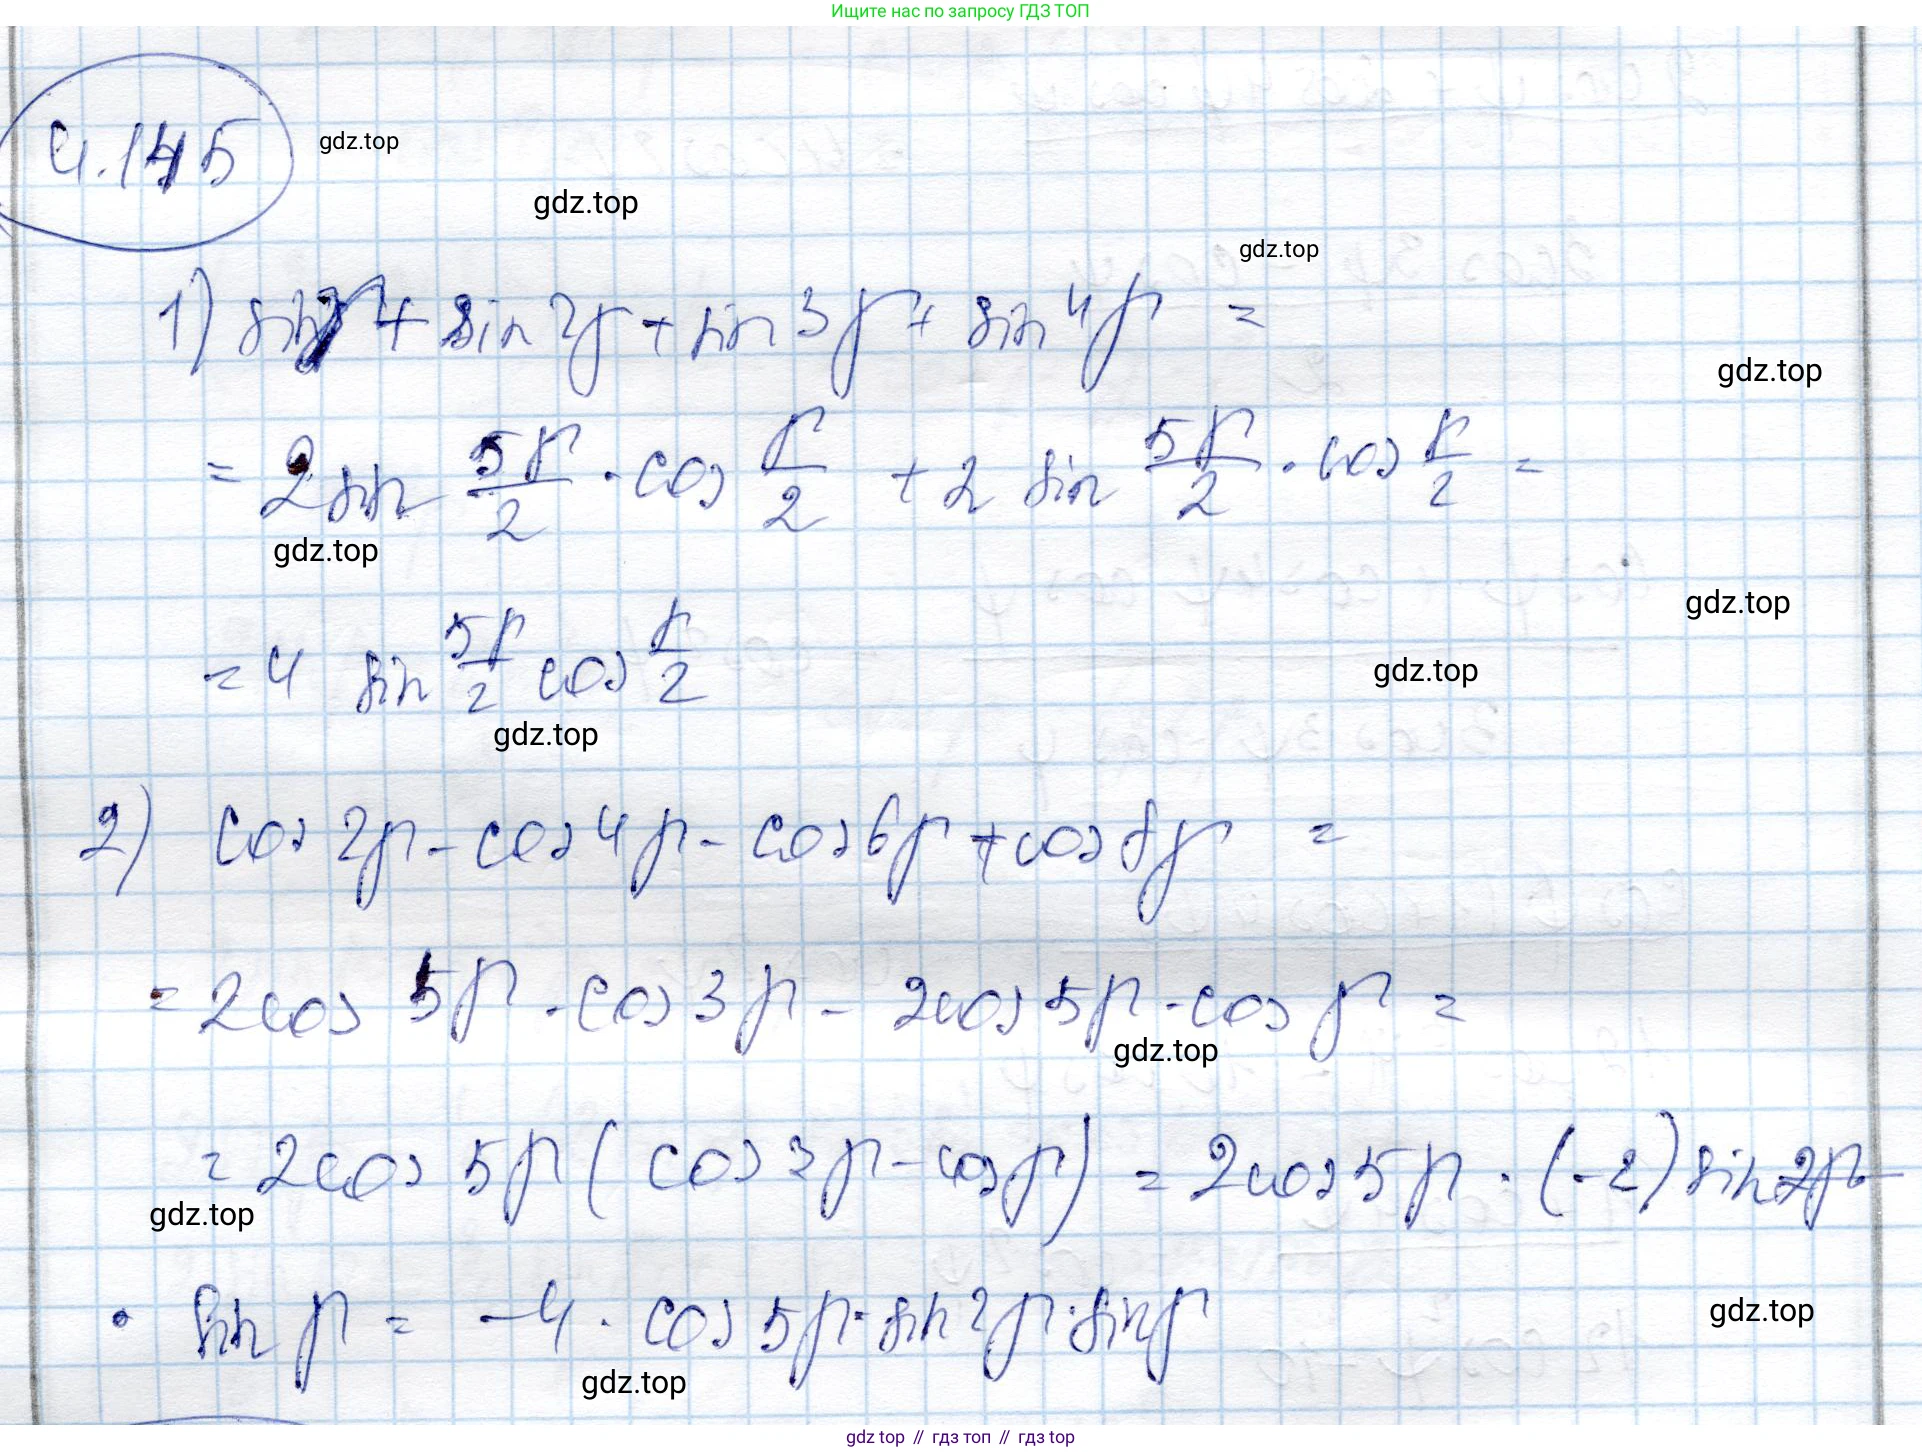 Ищите нас по запросу ГДЗ ТОП
4.145
gdz.top
gdz.top
gdz.top
1) sin γ + sin 2γ + sin 3γ + sin 4γ =
gdz.top
= 2 sin 5γ/2 · cos γ/2 + 2 sin 5γ/2 · cos γ/2 =
gdz.top
gdz.top
= 4 sin 5γ/2 cos γ/2
gdz.top
gdz.top
2) cos 2γ - cos 4γ - cos 6γ + cos 8γ =
= 2 cos 5γ · cos 3γ - 2 cos 5γ · cos γ =
gdz.top
= 2 cos 5γ ( cos 3γ - cos γ ) = 2 cos 5γ · (-2) sin 2γ ·
gdz.top
· sin γ = -4 · cos 5γ · sin 2γ · sin γ
gdz.top
gdz.top
gdz top // гдз топ // гдз top